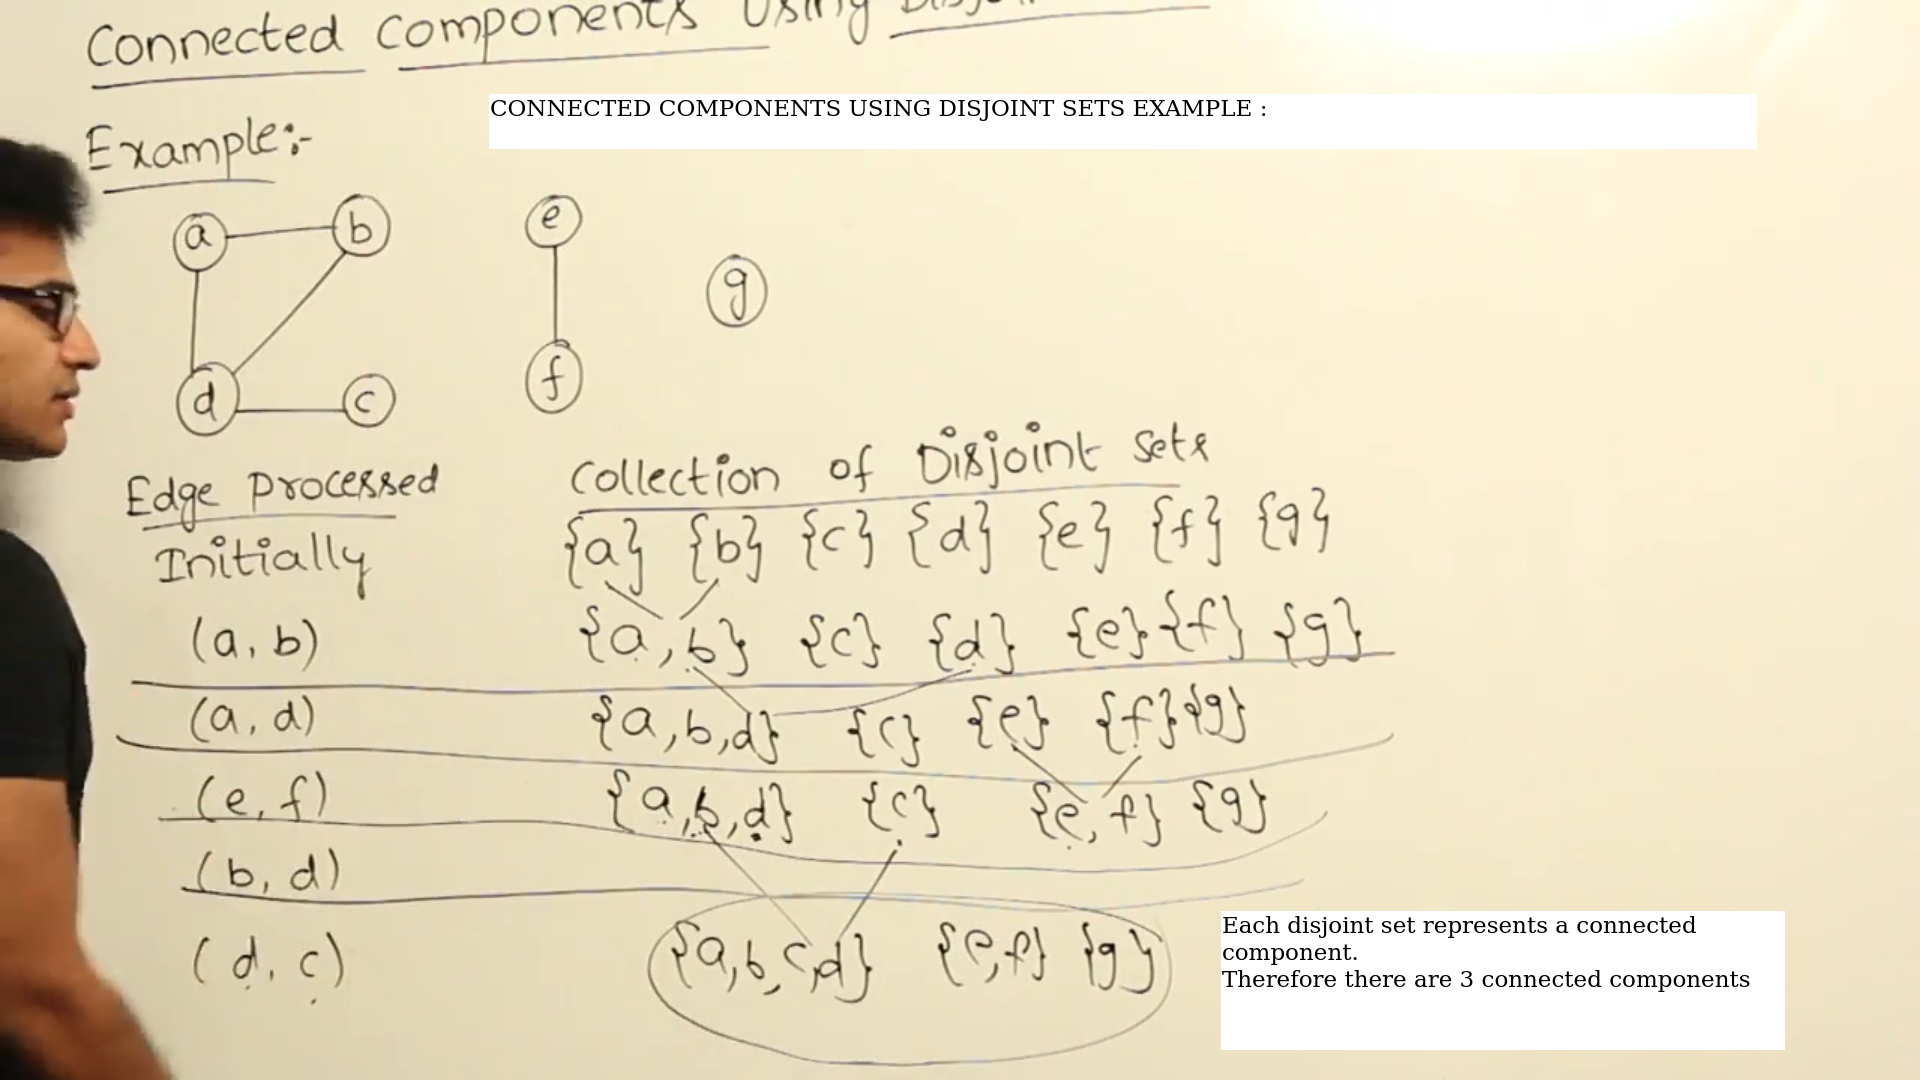 Connected Components Using
CONNECTED COMPONENTS USING DISJOINT SETS EXAMPLE :
Example:-
a b e
g
d c f
Edge Processed Collection of Disjoint Sets
Initially {a} {b} {c} {d} {e} {f} {g}
(a, b) {a, b} {c} {d} {e} {f} {g}
(a, d) {a, b, d} {c} {e} {f} {g}
(e, f) {a, b, d} {c} {e, f} {g}
(b, d)
(d, c) {a, b, c, d} {e, f} {g}
Each disjoint set represents a connected
component.
Therefore there are 3 connected components